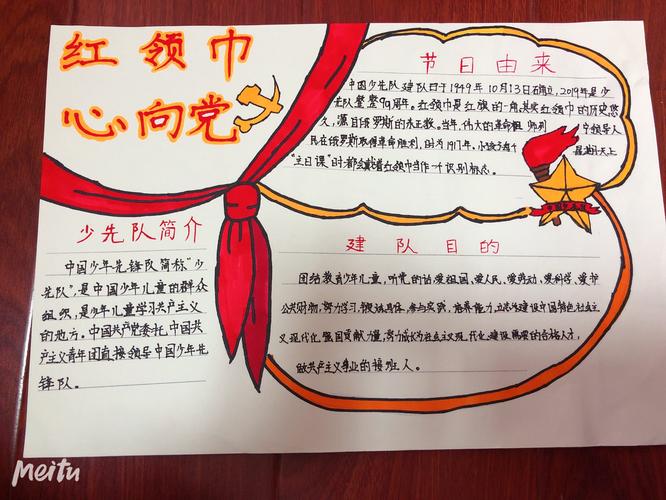 红领巾
心向党
节日由来
中国少先队建队日于1949年10月13日确立,2019年是少
先队整整70周年。红领巾是红旗的一角,其实红领巾的历史悠
久,源自俄罗斯的东正教。当年,伟大的革命
领导人
民在俄罗斯取得革命胜利,时为1917年,小孩子每个
星期天上
"主日课"时都会戴着红领巾当作一个识别标志。
中国少先队
少先队简介
中国少年先锋队简称"少
先队",是中国少年儿童的群众
组织,是少年儿童学习共产主义
的地方。中国共产党委托中国共
产主义青年团直接领导中国少年先
锋队。
建队目的
团结教育少年儿童,听党的话,爱祖国、爱人民、爱劳动、爱科学、爱护
公共财物,努力学习,锻炼身体,参与实践,培养能力,立志为建设中国特色社会主
义现代化强国贡献力量,努力成长为社会主义现代化建设需要的合格人才,
做共产主义事业的接班人。
meitu